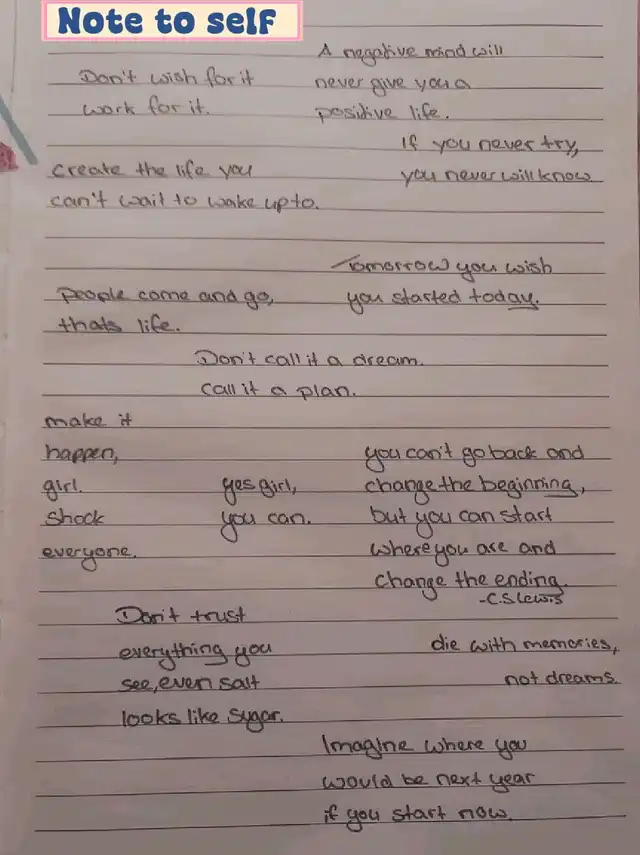 Note to self
A negative mind will
never give you a
positive life.
Don't wish for it
work for it.
If you never try,
you never will know
create the life you
can't wait to wake up to.
Tomorrow you wish
you started today.
people come and go,
thats life.
Don't call it a dream.
call it a plan.
make it
happen,
girl.
Shock
everyone.
yes girl,
you can.
you can't go back and
change the beginning,
but you can start
where you are and
change the ending.
-C.S Lewis
Don't trust
everything you
see, even salt
looks like sugar.
die with memories,
not dreams.
Imagine where you
would be next year
if you start now.